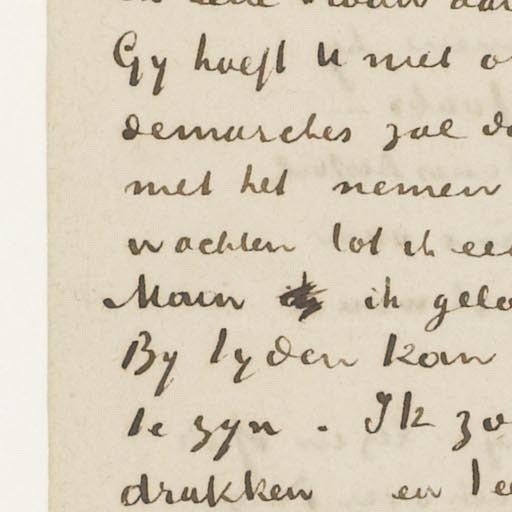 Gy hoeft U niet o
demarches zal do
met het nemen
wachten tot ik ee
Maar ik gelo
By tyden kan
te zyn . Ik zo
drukken en le